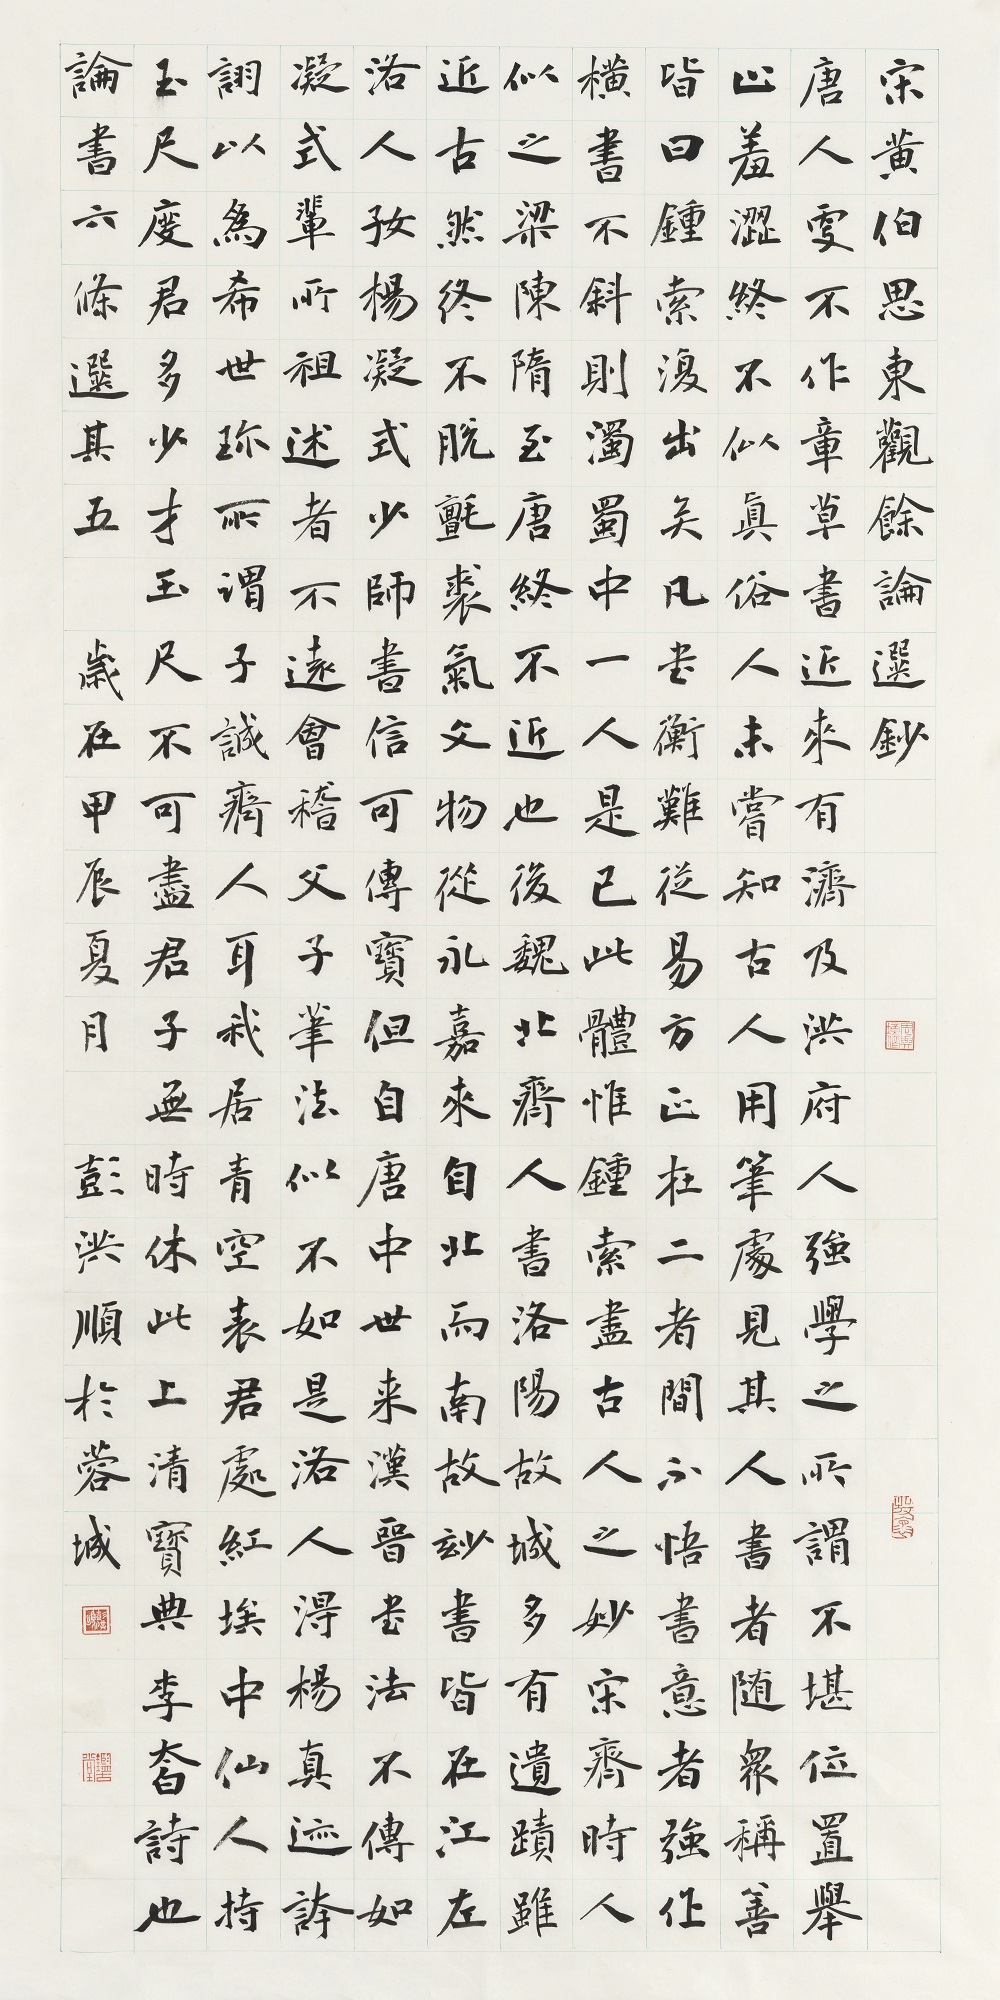 宋黄伯思東觀餘論選鈔
唐人雯不作章草書近來有濟及洪府人強學之所謂不堪位置舉
止羞澀終不似真俗人未嘗知古人用筆處見其人書者随衆稱善
皆曰鍾索復出矣凡書衡難從易方正在二者間不悟書意者強作
橫書不斜則濁蜀中一人是已此體惟鍾索盡古人之妙宋齊時人
似之梁陳隋至唐終不近也後魏北齊人書洛陽故城多有遺蹟雖
近古然終不脱氈裘氣文物從永嘉來自北而南故妙書皆在江左
洛人好楊凝式少師書信可傳寶但自唐中世来漢晉書法不傳如
凝式輩所祖述者不遠會稽父子筆法似不如是洛人得楊真迹誇
詡以為希世珎所謂子誠齊人耳我居青空表君處紅埃中仙人持
玉尺度君多少才玉尺不可盡君子無時休此上清寶典李太白詩也
論書六條選其五　歲在甲辰夏月　彭洪順於蓉城